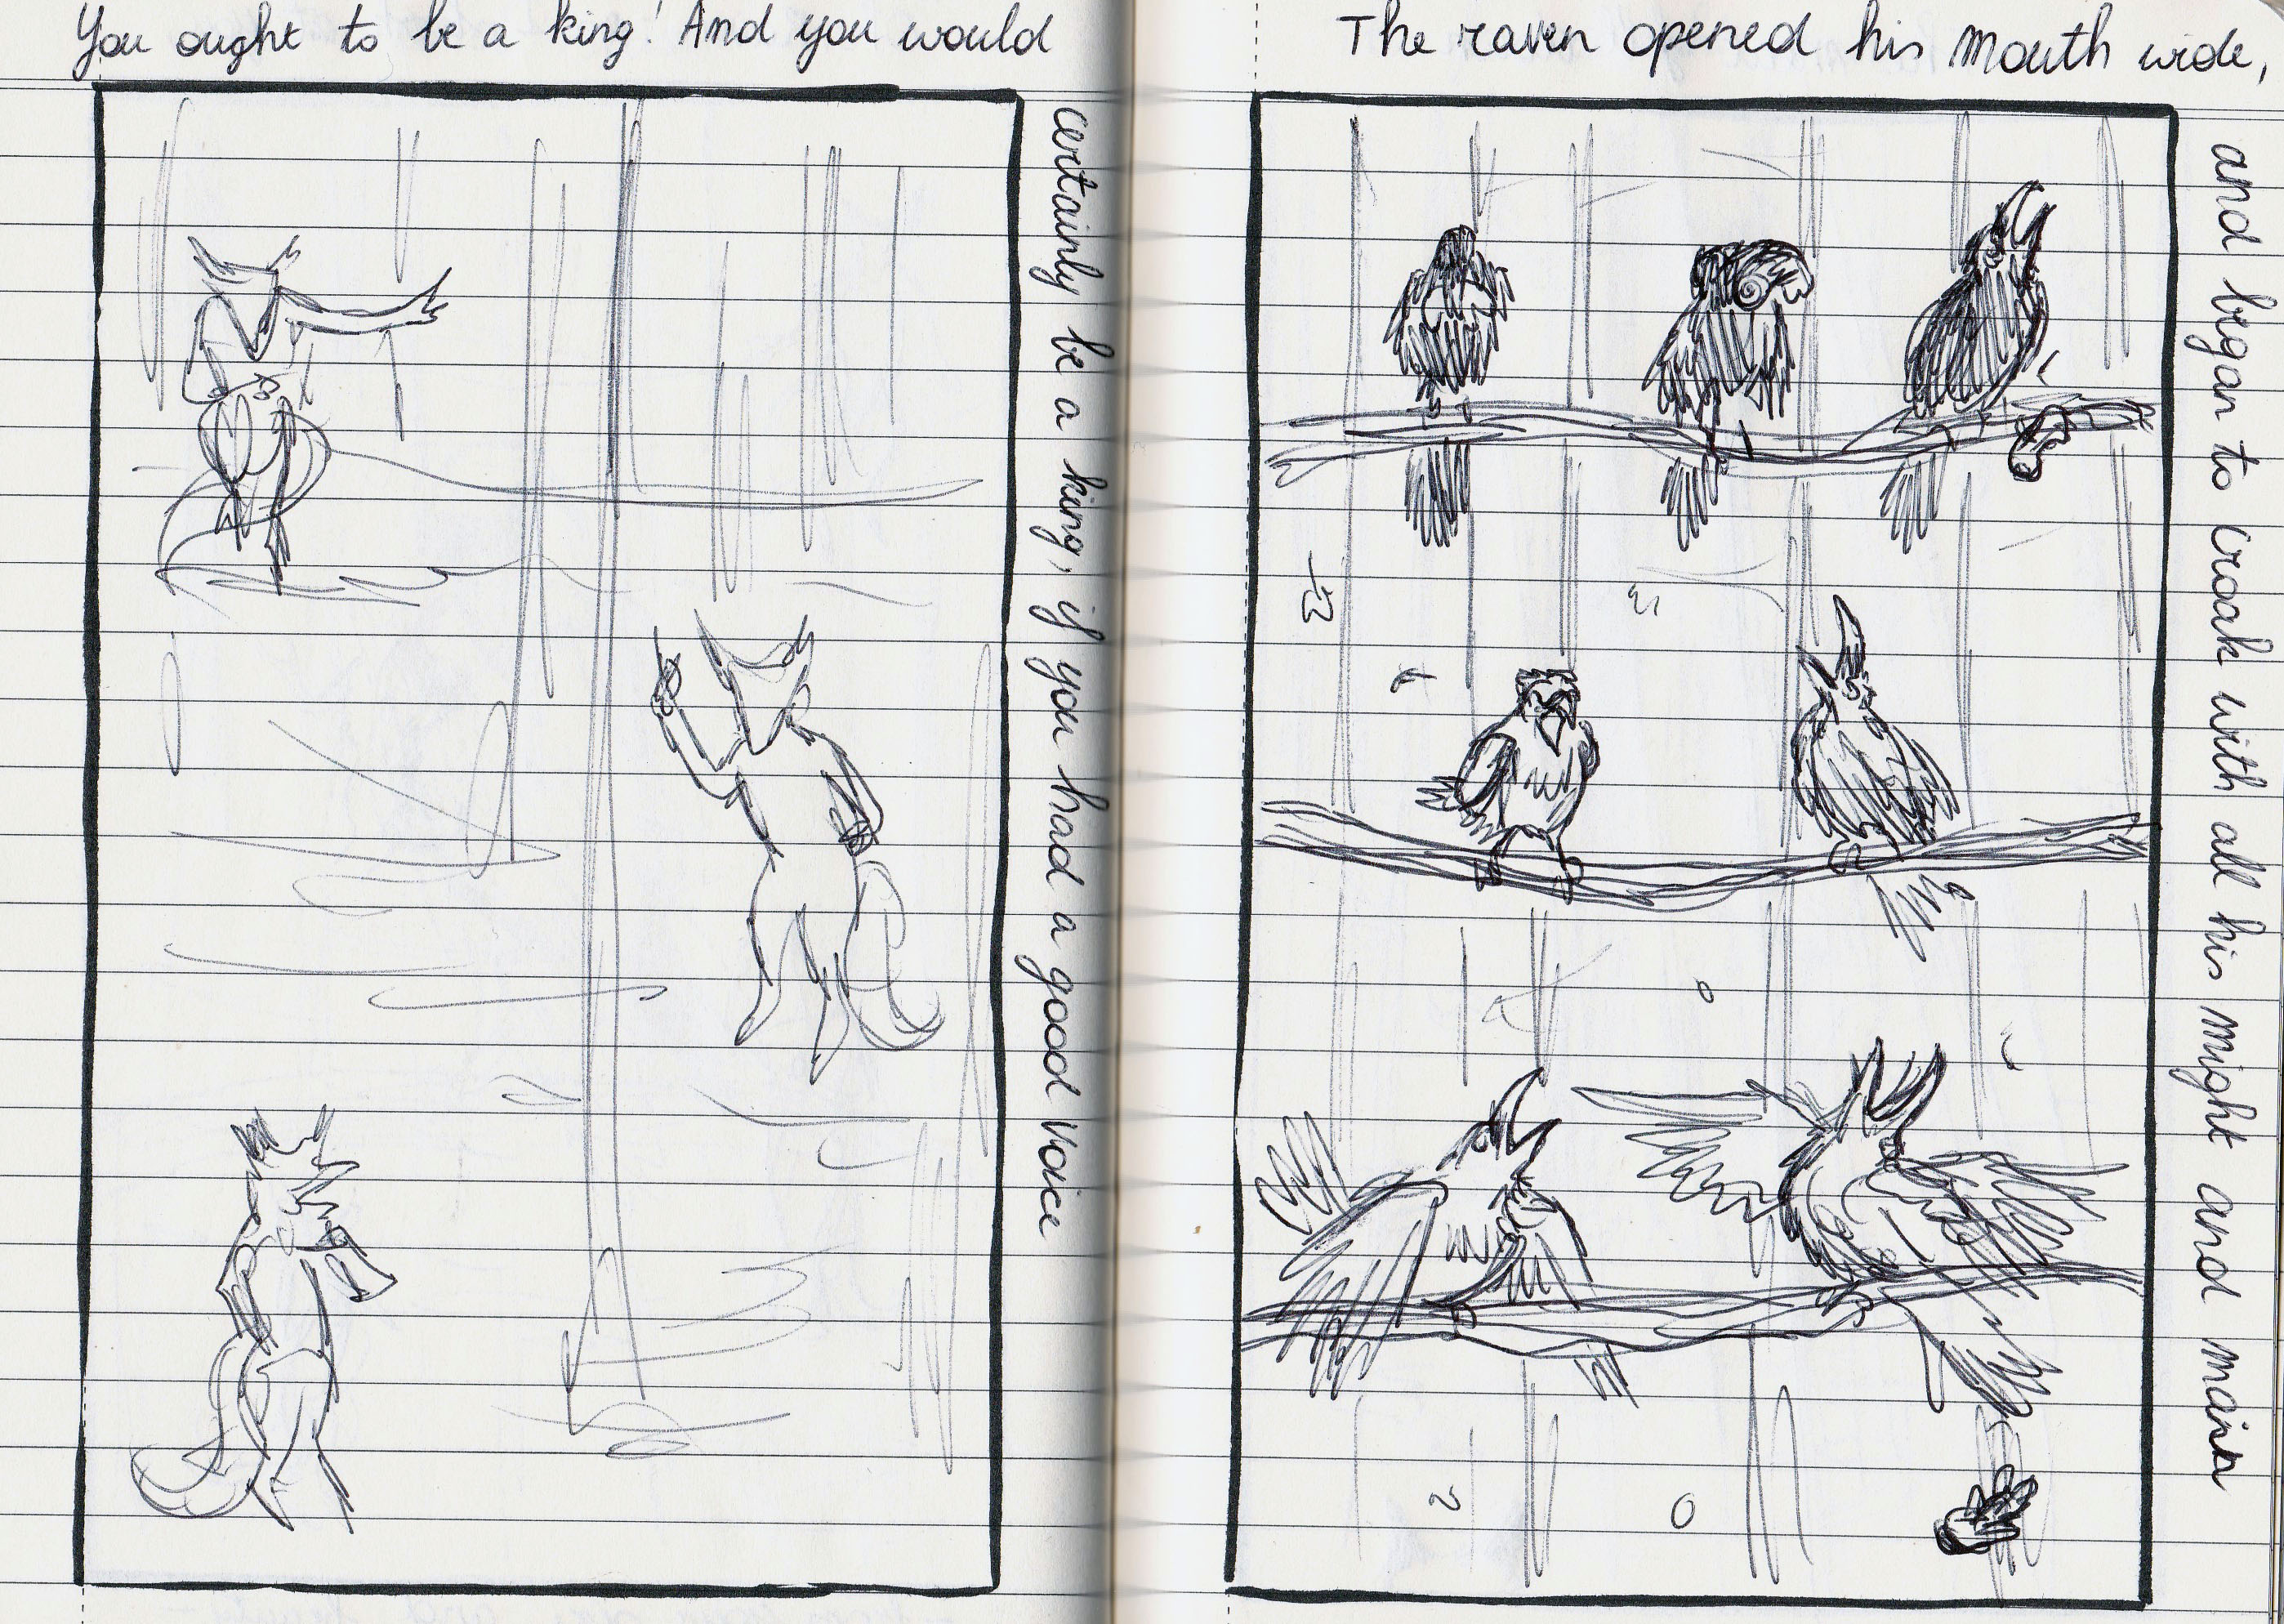 You ought to be a king! And you would
certainly be a king, if you had a good voice
The raven opened his mouth wide,
and began to croak with all his might and main